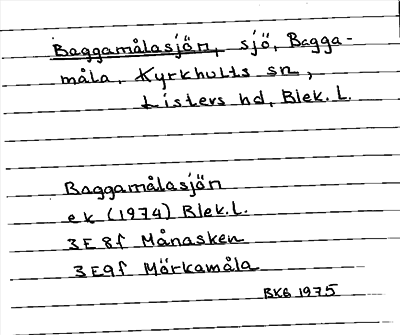 Baggamålasjön, sjö, Bagga-
måla, Kyrkhults sn,
Listers hd, Blek. L.
Baggamålasjön
ek (1974) Blek. L.
3E 8f Månasken
3E9f Märkamåla
BKG 1975